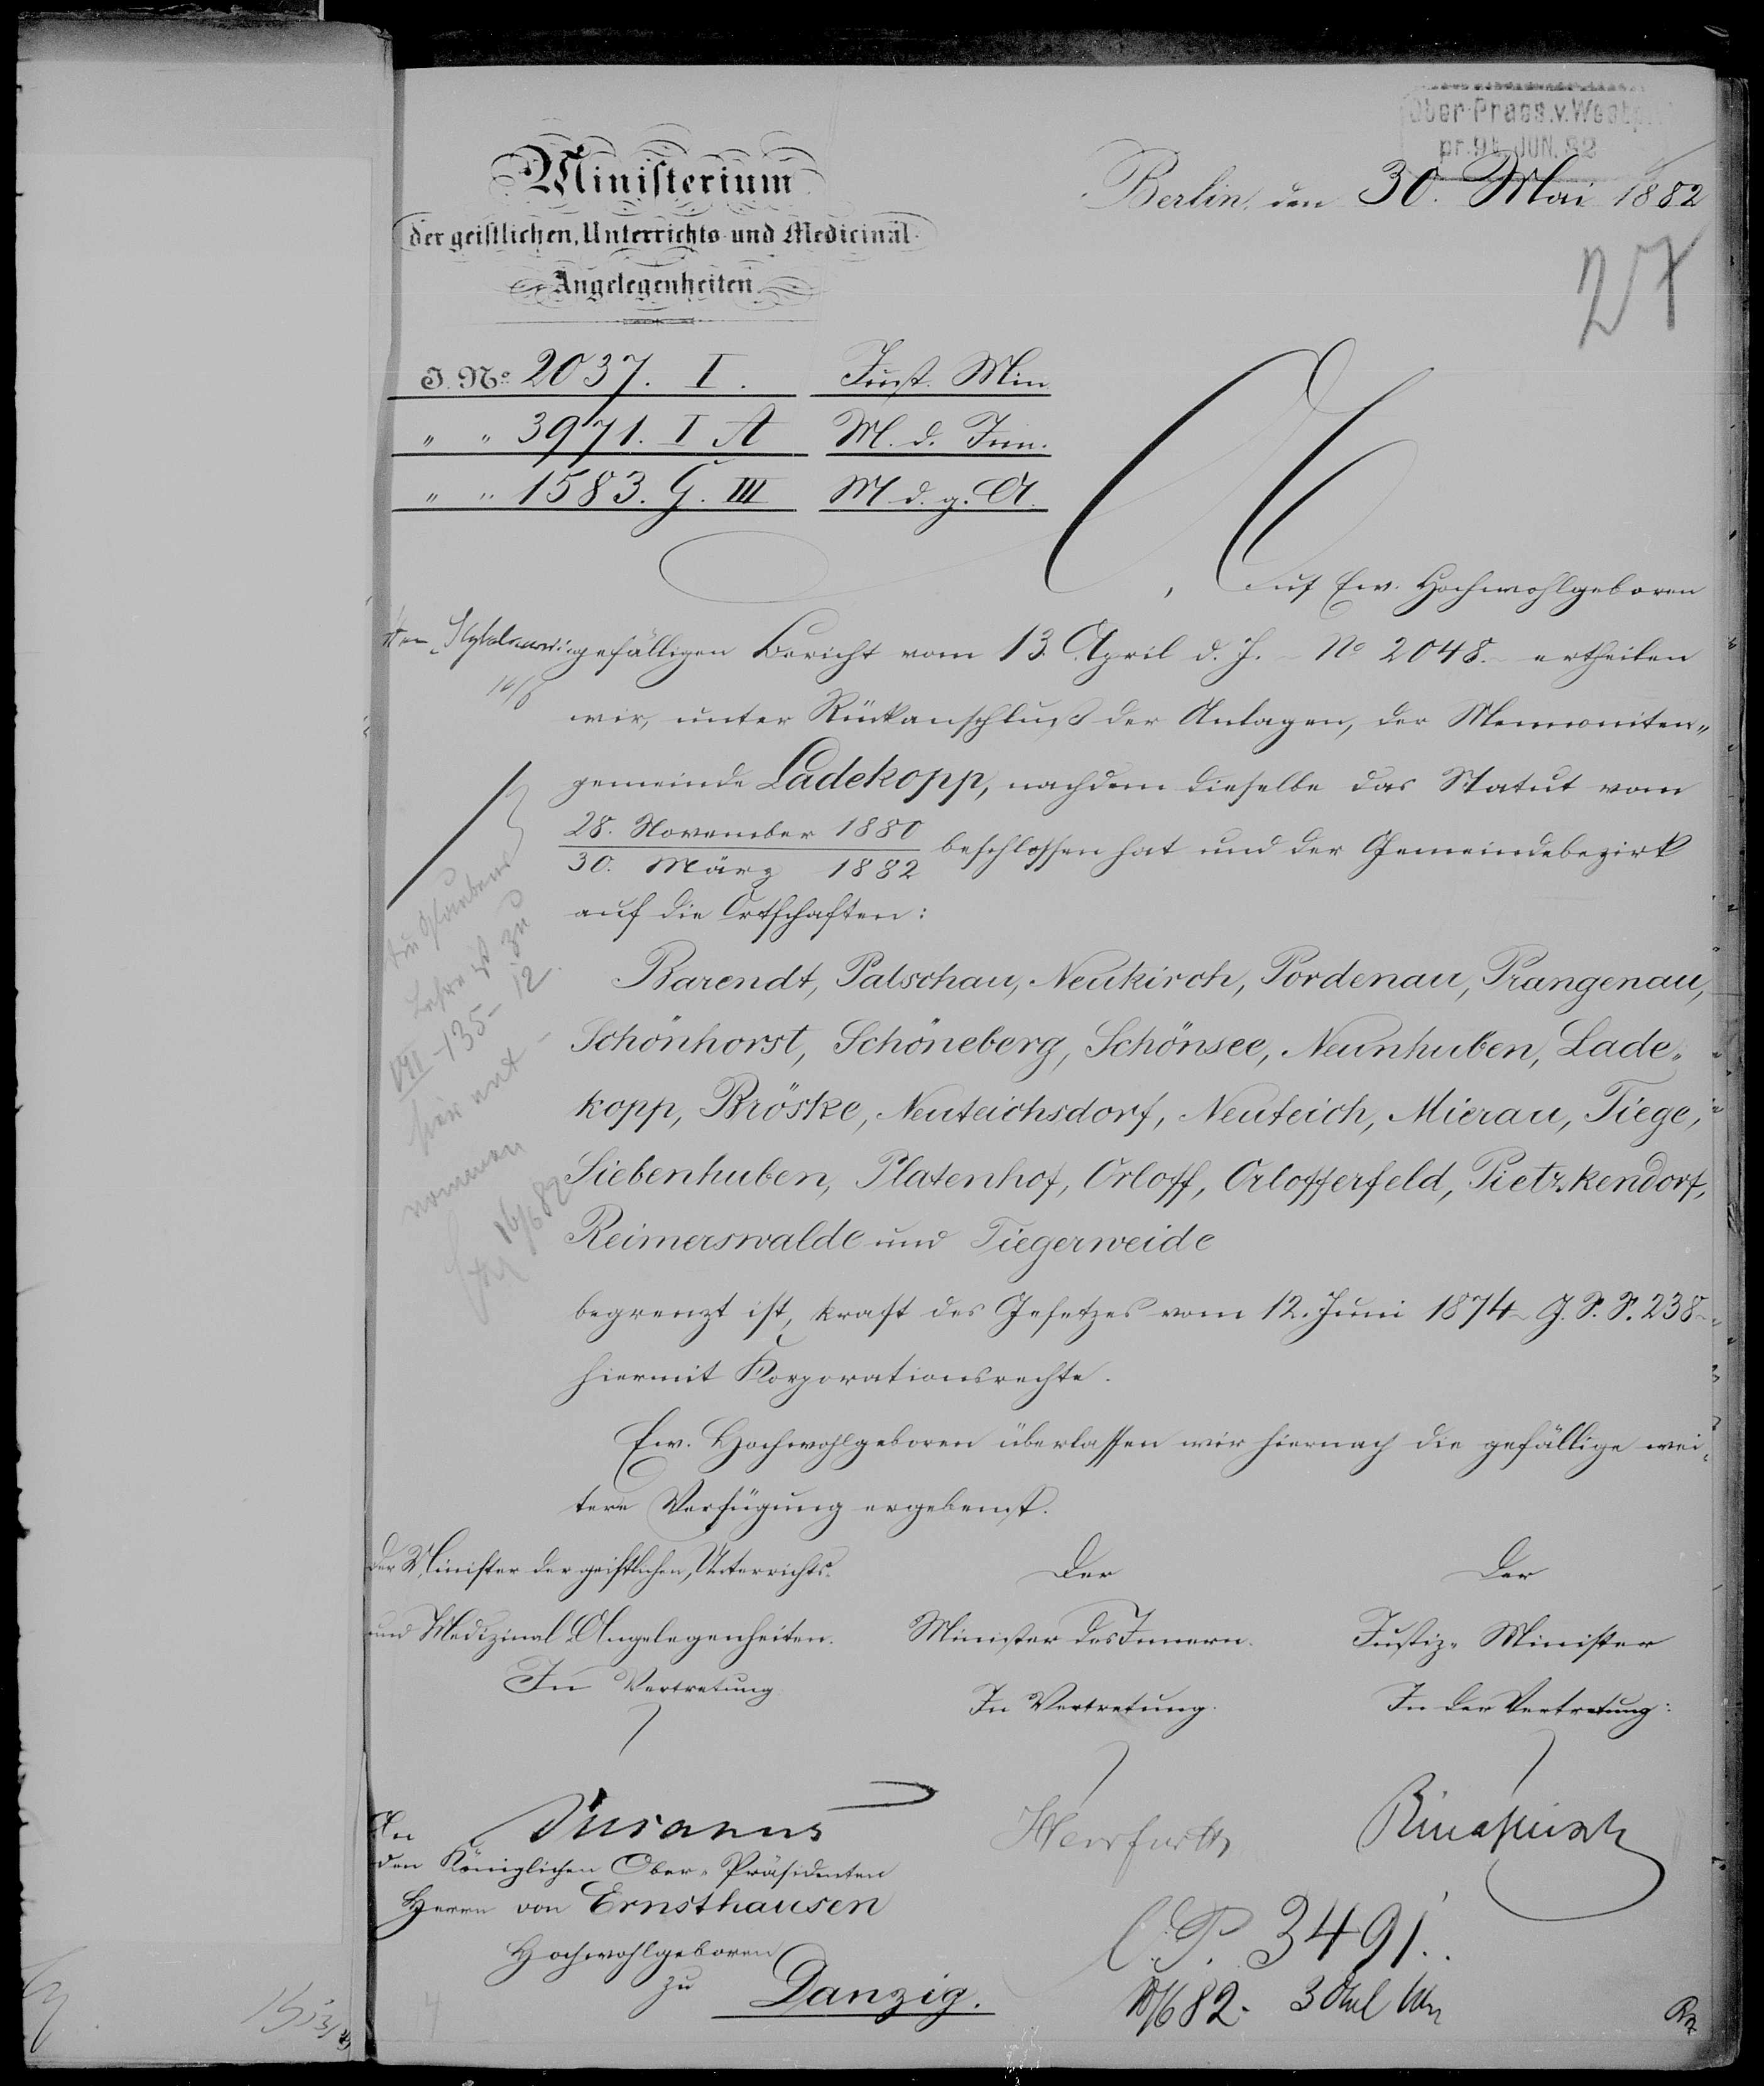 Ober-Praes. v. Westp
pr. 9 JUN. 82
Ministerium
der geistlichen, Unterrichts- und Medicinal-
Angelegenheiten
Berlin, den 30. Mai 1882
27
J. No. 2037. I. Just. Min
" " 3971. I A M. d. Inn.
" " 1583. G. III M. d. g. A.
Auf Ew. Hochwohlgeboren
gefälligen Bericht vom 13. April d. J. - No 2048. - ertheilen
wir, unter Rückanschluß der Anlagen, der Mennoniten-
gemeinde Ladekopp, nachdem dieselbe das Statut vom
28. November 1880
30. März 1882
beschlossen hat und der Gemeindebezirk
auf die Ortschaften:
Barendt, Palschau, Neukirch, Pordenau, Prangenau,
Schönhorst, Schöneberg, Schönsee, Neunhuben, Lade-
kopp, Bröske, Neuteichsdorf, Neuteich, Mierau, Tiege,
Siebenhuben, Platenhof, Orloff, Orlofferfeld, Pietzkendorf,
Reimerswalde und Tiegerweide
begrenzt ist, kraft des Gesetzes vom 12. Juni 1874 - G. S. S. 238 -
hiermit Korporationsrechte.
Ew. Hochwohlgeboren überlassen wir hiernach die gefällige wei-
tere Verfügung ergebenst.
Der Minister der geistlichen, Unterrichts-
und Medizinal-Angelegenheiten.
In Vertretung
Der
Minister des Innern.
In Vertretung.
Der
Justiz-Minister
In der Vertretung:
Lucanus
Herrfurth
Rindfleisch
An
den Königlichen Ober-Präsidenten
Herrn von Ernsthausen
Hochwohlgeboren
zu Danzig.
O. P. 3491.
16/6
Lehre ist zu
VII - 135 - 12
nommen
16/6 82
10/6 82.
4